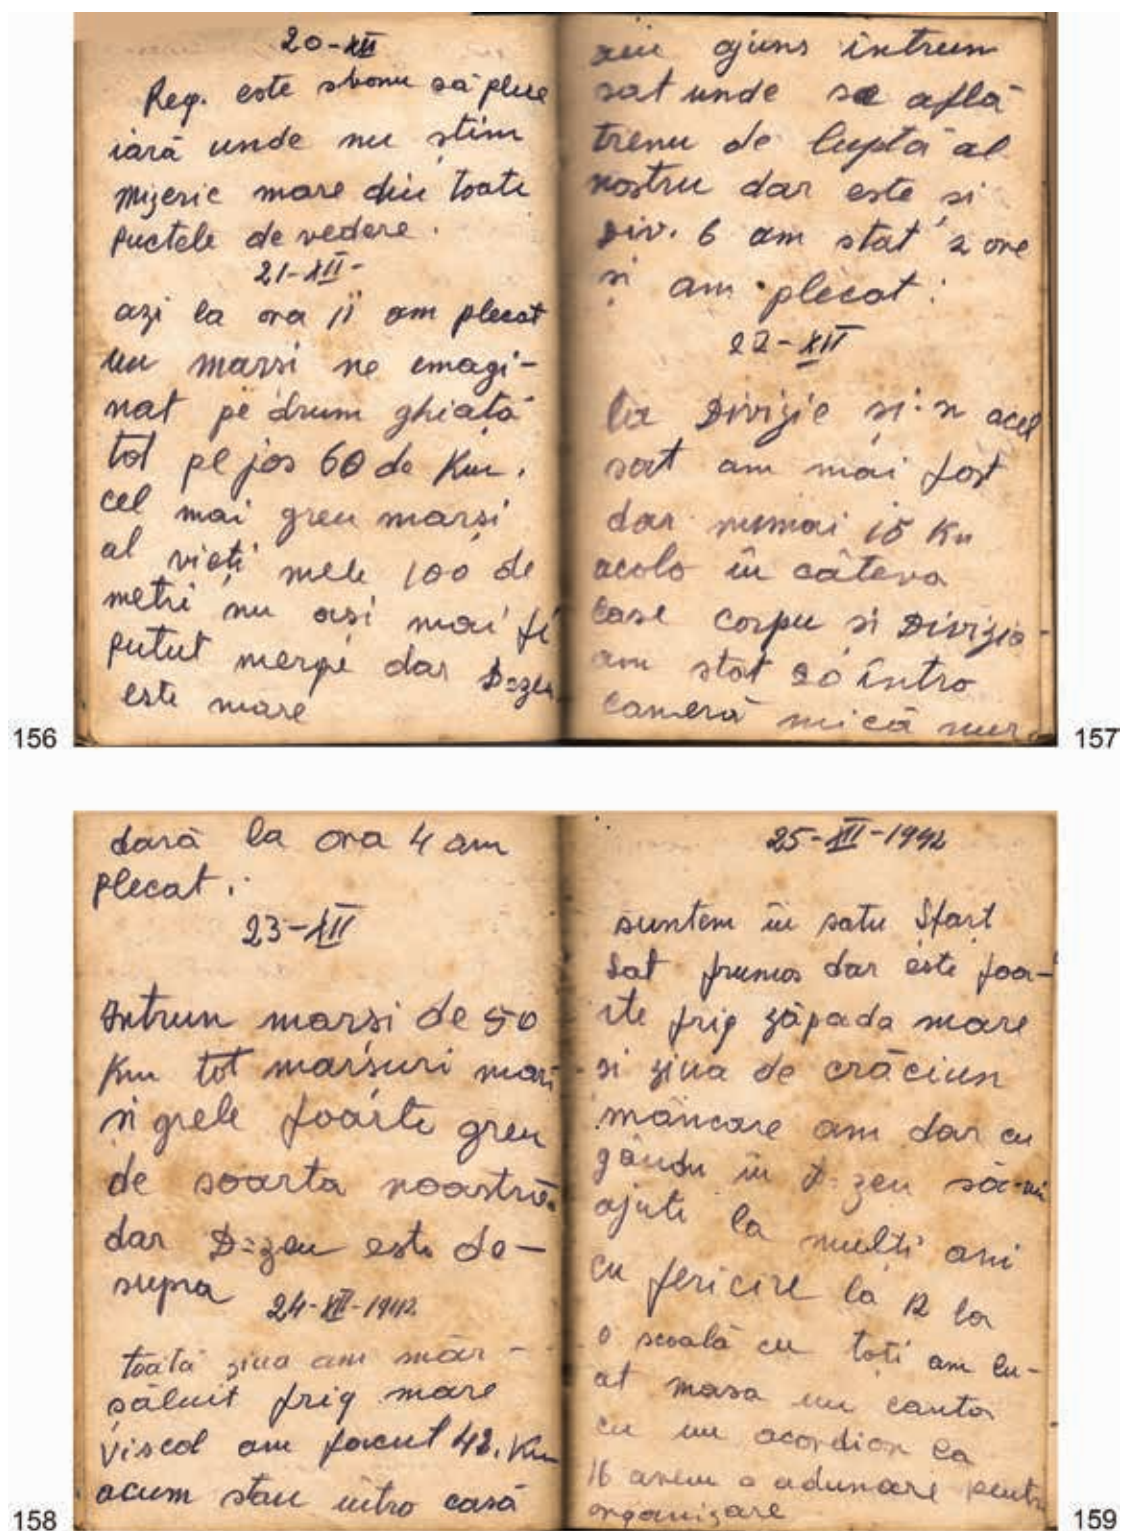 20-XII
Reg. este sbonu să plece
iară unde nu știm
Mizerie mare din toate
puctele de vedere.
21-XII-
azi la ora 11 am plecat
un marși ne emagi-
nat pe drum ghiață
tot pe jos 60 de Km.
cel mai greu marși
al vieți mele 100 de
metri nu ași mai fi
putut merge dar D=zeu
este mare
156
am ajuns intrun
sat unde se află
trenu de luptă al
nostru dar este și
Div. 6 am stat 2 ore
și am plecat.
22-XII
la Divizie și-n acel
sat am mai fost
dar numai 15 Km
acolo în câteva
case corpu și Divizia
am stat 20 întro
cameră mică mur
157
dară la ora 4 am
plecat.
23-XII
Intrun marși de 50
Km tot marșuri mari
și grele foarte greu
de soarta noastră.
dar D=zeu este de-
supra
24-XII-1942
toată ziua am măr-
șăluit frig mare
viscol am facut 42. Km
acum stau intro casă
158
25-XII-1942
suntem in satu Sfart
sat frumos dar este foa-
rte frig zăpada mare
si ziua de crăciun
măncare am dar cu
găndu in D=zeu să-mi
ajute la mulți ani
cu fericire la 12 la
o scoală cu toți am lu-
at masa un canta
cu un acordion la
16 avem o adunare pentru
organizare
159